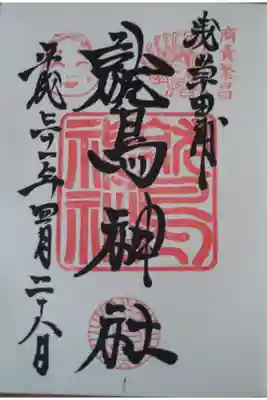 商賣繁昌
浅草田甫
鷲神社
平成 年四月二十八日